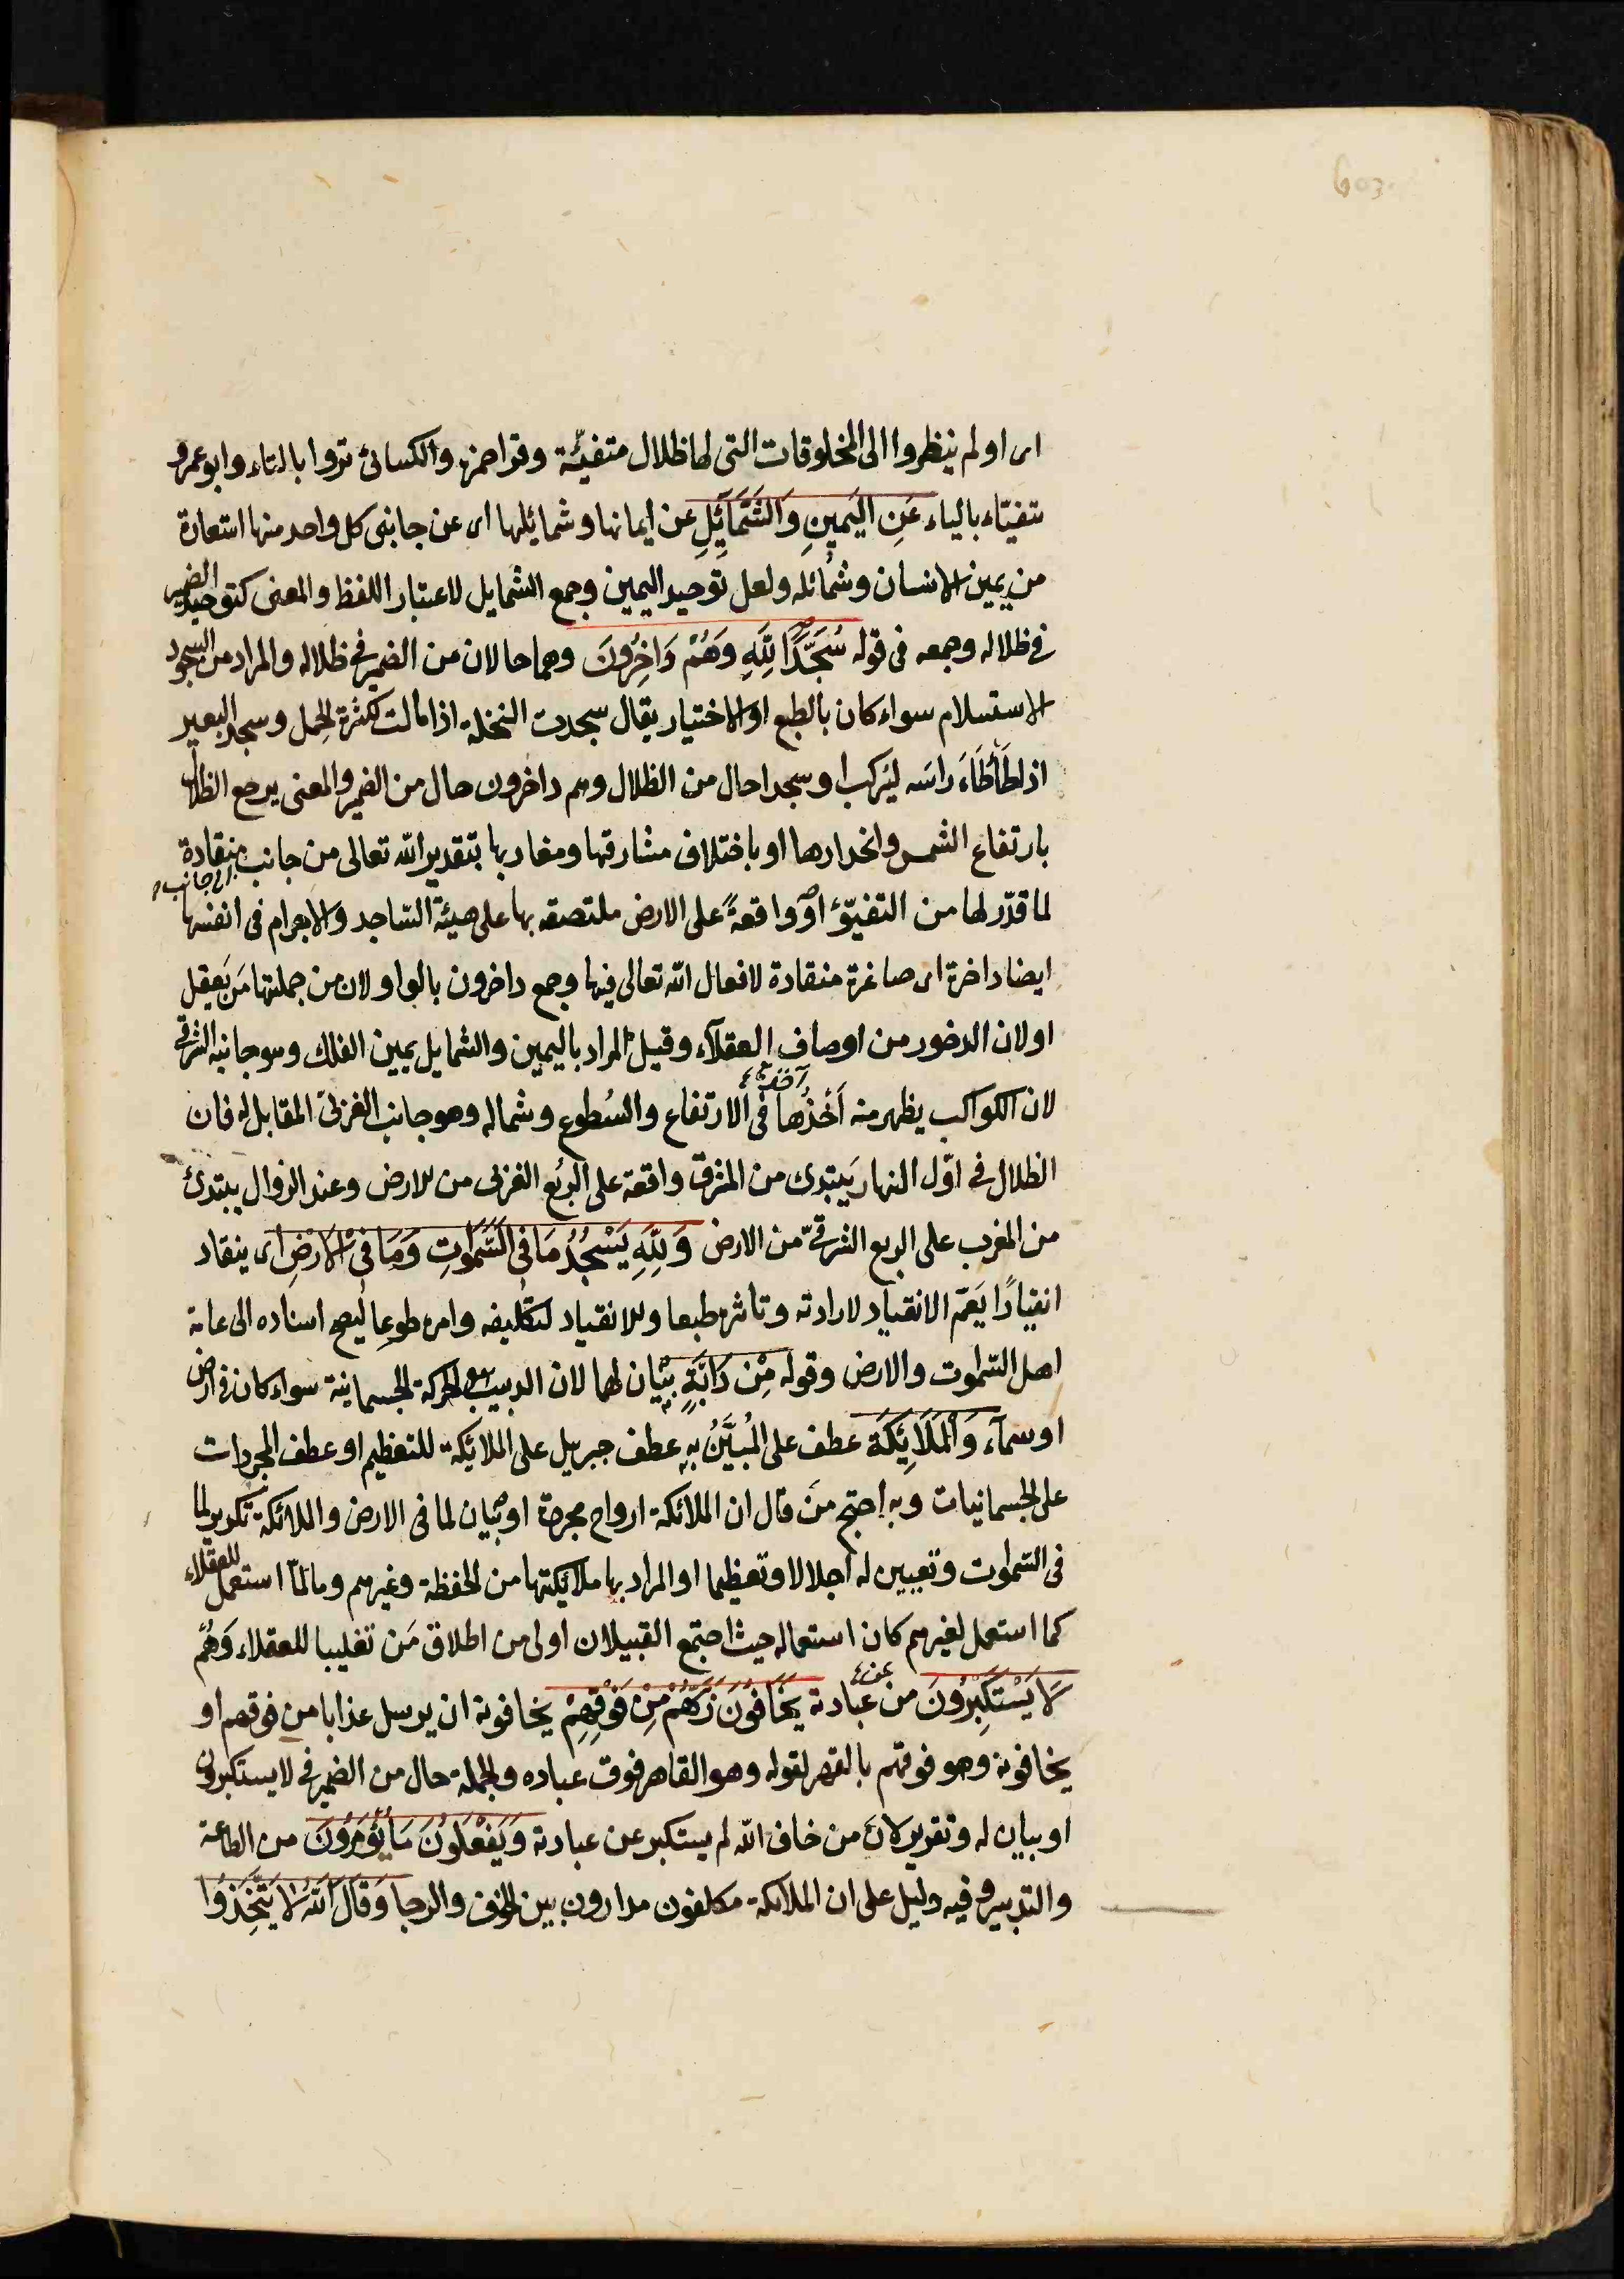 603
اى اولم ينظروا الى المخلوقات التى لها ظلال متفيّئة وقرا حمزة والكسائى تروا بالتاء وابو عمرو
تتفيّاء بالياء عَنِ اليَمينِ وَالشَّمَآئِلِ عن ايمانها وشمائلها اى عن جانبى كل واحد منها استعارة
من يمين الانسان وشمائله ولعل توحيد اليمين وجمع الشمايل لاعتبار اللفظ والمعنى كتوحيد الضمير
فى ظلاله وجمعه فى قوله سُجَّدًا لِلَّهِ وَهُمْ دَاخِرُونَ وهما حالان من الضمير فى ظلاله والمراد من السجود
الاستسلام سواء كان بالطبع او الاختيار يقال سجدت النخلة اذا مالت لكثرة الحمل وسجد البعير
اذا طَأطَاءَ راسَه ليُركب او سجدا حال من الظلال وهم داخرون حال من الضمير والمعنى يرجع الظلال
بارتفاع الشمس وانحدارها او باختلاف مشارقها ومغاربها بتقدير الله تعالى من جانب الى جانب منقادة
لما قدّر لها من التفيّؤ او واقعةً على الارض ملتصقه بها على هيئة الساجد والاجرام فى انفسها
ايضا داخرة اى صاغرة منقادة لافعال الله تعالى فيها وجمع داخرون بالواو لان من جملتها مَن يَعقِل
او لان الدخور من اوصاف العقلآء وقيل المراد باليمين والشمايل يمين الفلك وهو جانبه الشرقى
لان الكواكب يظهر منه آخذة أَخْذُها فى الارتفاع والسُطوع وشماله وهو جانب الغربىّ المقابل له فان
الظلال فى اوّل النهار يَبتدى من المشرق واقعة على الربع الغربى من الارض وعند الزوال يبتدئ
من المغرب على الربع الشرقىّ من الارض وَلِلَّهِ يَسْجُدُ مَا فِى السَّمٰوٰتِ وَمَا فِى الْاَرْضِ اى ينقاد
انقيادًا يَعمّ الانقياد لارادته وتاثيره طبعا والانقياد لتكليفه وامره طوعا ليصح اسناده الى عامة
اهل السّمٰوت والارض وقوله مِنْ دَابَّةٍ بيان لهما لان الدبيب هو الحركة الجسمانية سواء كان فى ارض
او سمآء وَالْمَلَائِكَة عطف على المُبيَّنُ به عطف جبريل على الملائكة للتعظيم او عطف المجردات
على الجسمانيات وبه احتج مَن قال ان الملائكة ارواح مجردة او بيان لما فى الارض والملائكة تكرير لما
فى السّمٰوت وتعيين له اجلالا وتعظيما او المراد بها ملائكتها من الحفظة وغيرهم وما لمّا استعمل للعقلاء
كما استعمل لغيرهم كان استعماله حيث اجتمع القبيلان اولى من اطلاق مَن تغليبا للعقلاء وَهُمْ
لَا يَسْتَكْبِرُونَ من عن عبادته يَخَافُونَ رَبَّهُمْ مِنْ فَوْقِهِمْ يخافونه ان يرسل عذابا من فوقهم او
يخافونه وهو فوقهم بالقهر لقوله وهو القاهر فوق عباده والجملة حال من الضمير فى لا يستكبرون
او بيان له وتقرير لانّ من خاف الله لم يستكبر عن عبادته وَيَفْعَلُونَ مَا يُؤْمَرُونَ من الطاعة
والتدبير وفيه دليل على ان الملائكة مكلفون مدارون بين الخوف والرجا وَقَالَ اللّٰهُ لَا تَتَّخِذُوا